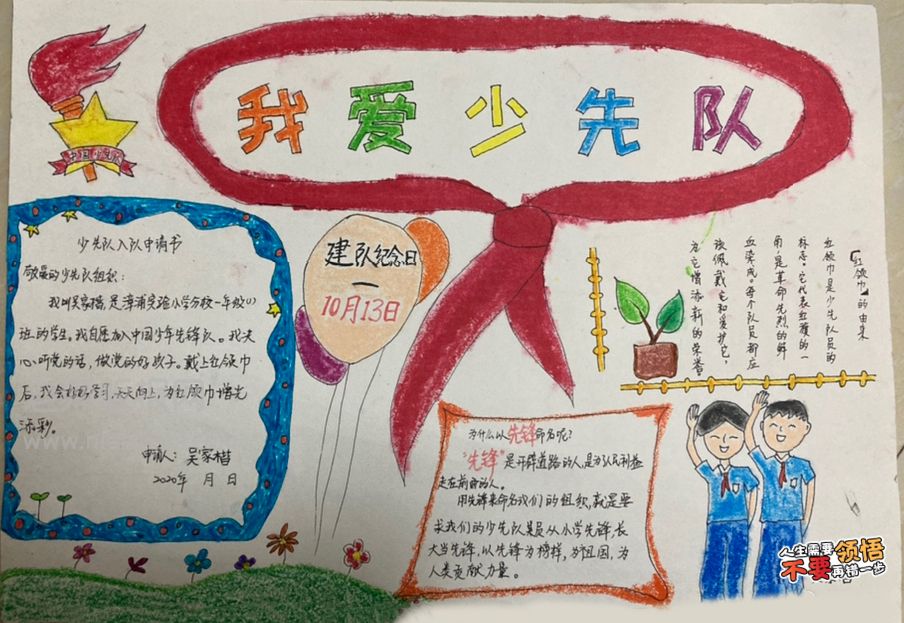 我爱少先队
少先队入队申请书
敬爱的少先队组织：
我叫吴家楷，是漳浦实验小学分校一年级(1)
班的学生，我自愿加入中国少年先锋队。我决
心听党的话，做党的好孩子。戴上红领巾
后，我会好好学习，天天向上，为红领巾增光
添彩。
申请人：吴家楷
2020年 月 日
建队纪念日
10月13日
「红领巾」的由来
红领巾是少先队员的
标志。它代表红旗的一
角，是革命先烈的鲜
血染成。每个队员都应
该佩戴它和爱护它，
为它增添新的荣誉
为什么以先锋命名呢？
"先锋"是开辟道路的人，是为人民利益
走在前面的人。
用先锋来命名我们的组织，就是要
求我们的少先队员从小学先锋，长
大当先锋，以先锋为榜样，为祖国，为
人类贡献力量。
人生需要领悟
不要再错一步